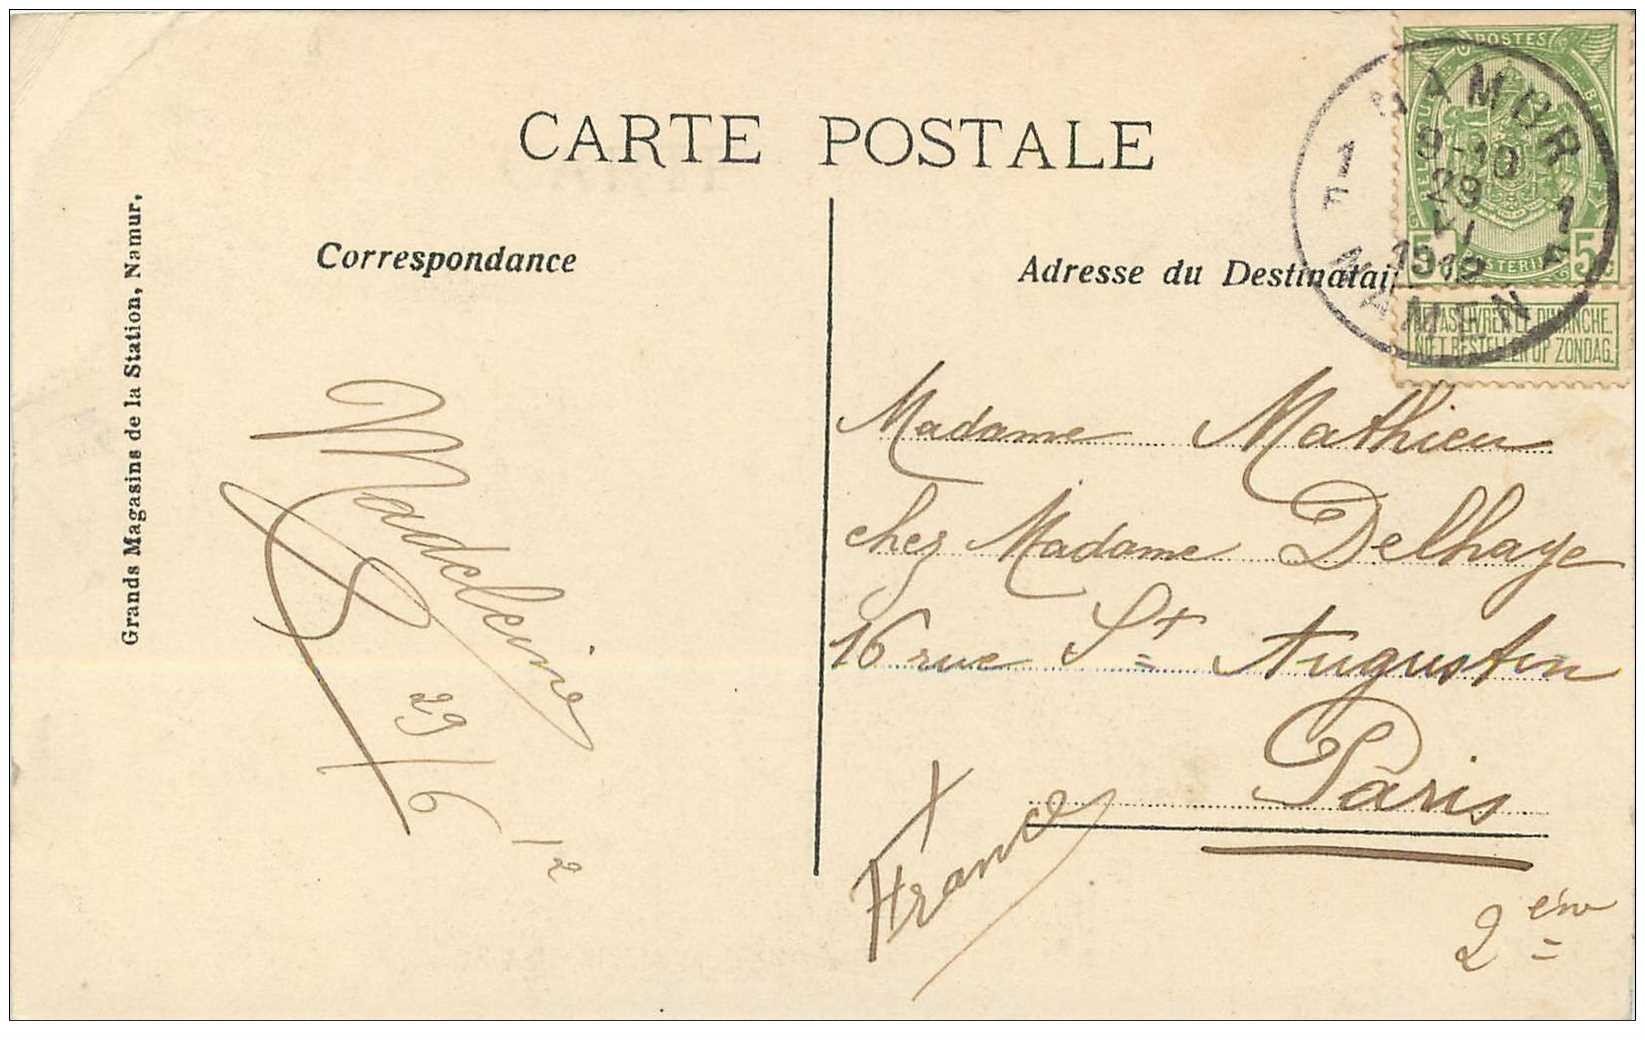 CARTE POSTALE
Grands Magasins de la Station, Namur.
Correspondance
Adresse du Destinatai
POSTES
5 5c
NE PAS LIVRER LE DIMANCHE.
NIET BESTELLEN OP ZONDAG.
NAMUR 1
9-10
29
VI
1912
NAMEN
1
F
Madeleine
29/6 12
Madame Mathieu
chez Madame Delhaye
16 rue St Augustin
Paris
France
2ème